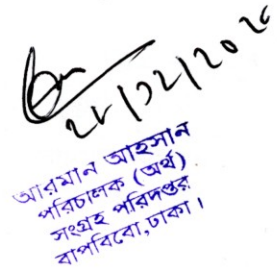 ২৮/১২/২০২৫
আরমান আহসান
পরিচালক (অর্থ)
সংগ্রহ পরিদপ্তর
বাপবিবো, ঢাকা।